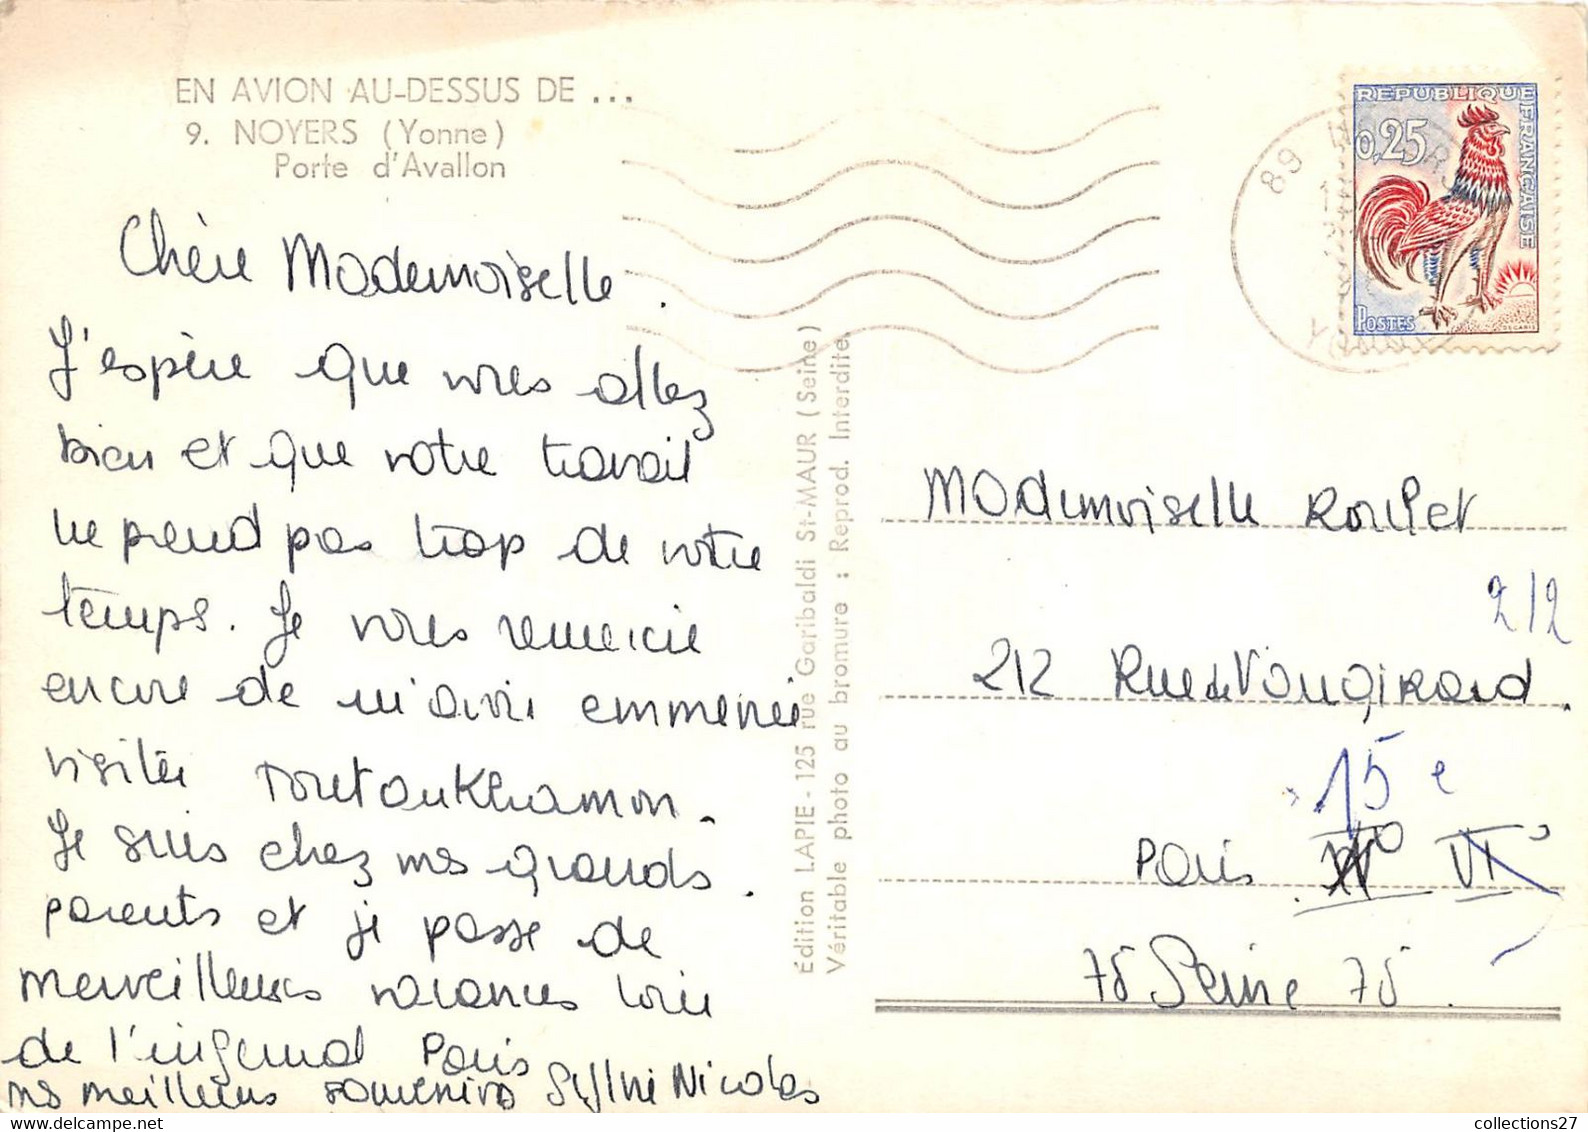 EN AVION AU-DESSUS DE ...
9. NOYERS (Yonne)
Porte d'Avallon
Chère Mademoiselle.
J'espère que vous allez
bien et que votre travail
ne prend pas trop de votre
temps. Je vous remercie
encore de m'avoir emmenée
visiter Toutankhamon.
Je suis chez mes grands
parents et je passe de
merveilleuses vacances loin
de l'infernal Paris
mes meilleurs souvenirs Sylvie Nicolas
Édition LAPIE - 125 rue Garibaldi St-MAUR (Seine)
Véritable photo au bromure : Reprod. Interdite
REPUBLIQUE FRANÇAISE
0,25
POSTES
DECARIS
89
YONNE
Mademoiselle Roulet
212
212 Rue de Vaugirard.
15 e
Paris VI
75 Seine 75.
collections27